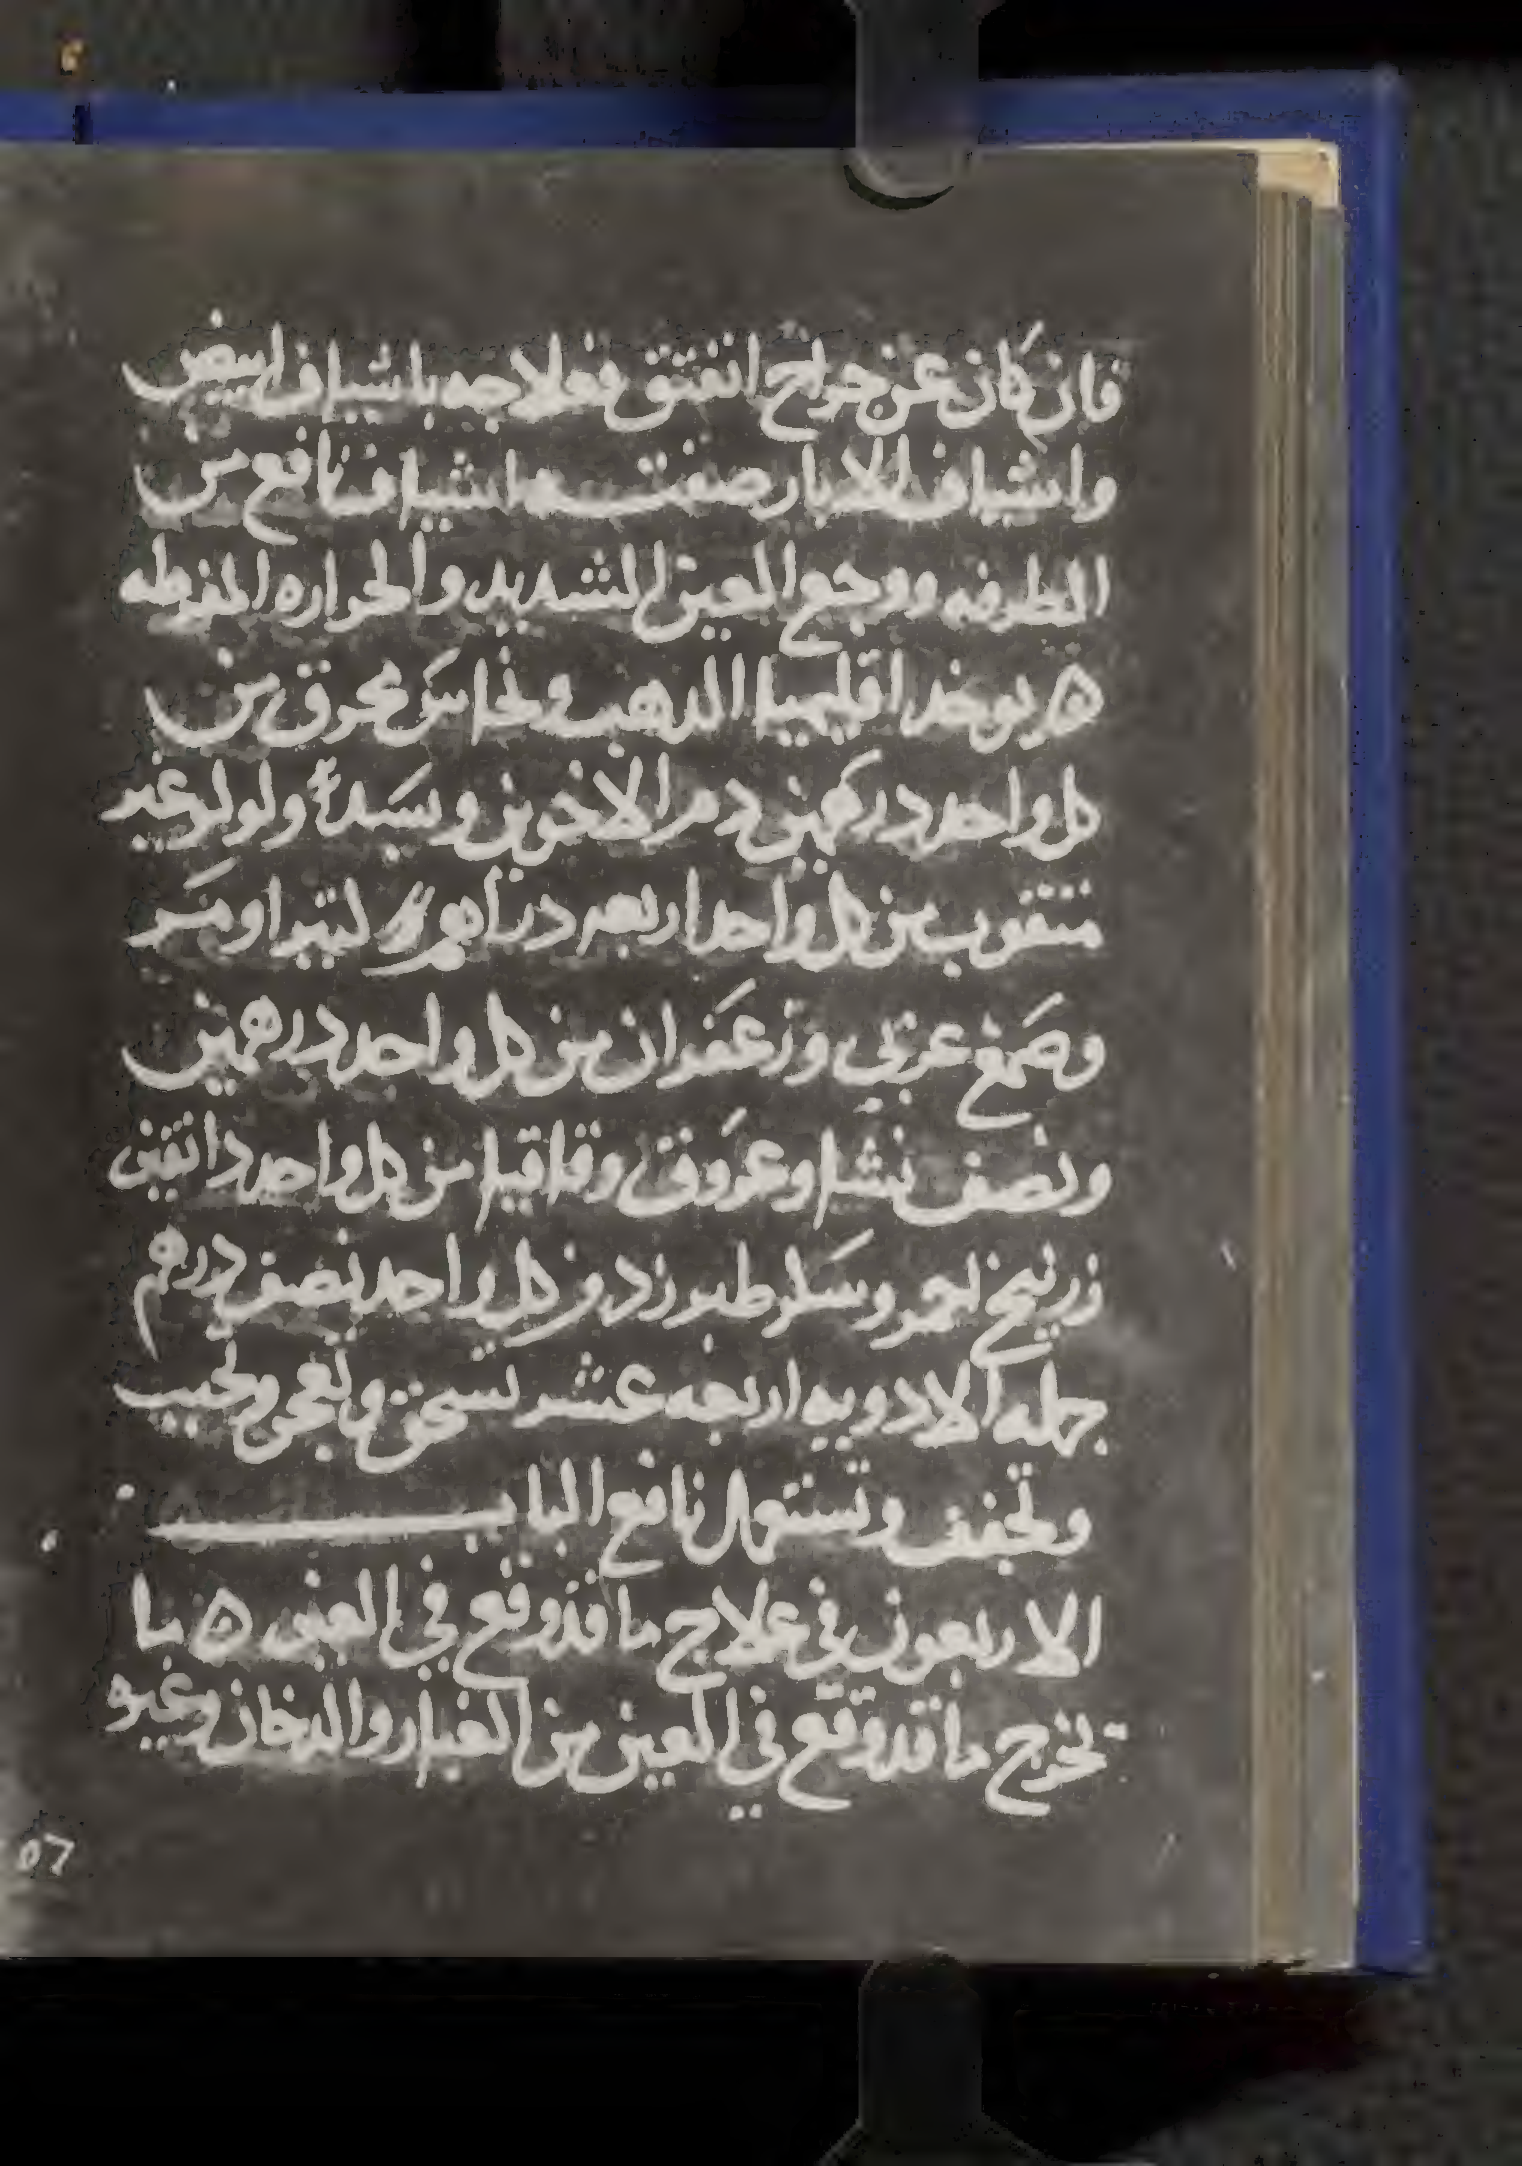 فان كان عن جراح انفتق فعلاجه باشياف ابيض
واشياف الابار صفت اشياف نافع من
الطرفه ووجع العين الشديد والحراره المفرطه
ه يوخد اقليميا الدهب ونحاس محرق من
كل واحد درهمين دم الاخوين وسبد ولولو غير
متقوب من كل واحد اربعه دراهم كتيرا ومر
وصمغ عربي وزعفران من كل واحد درهمين
ونصف نشا وعروق وقاقيا من كل واحد دانقين
زرنيخ احمر وسكر طبرزد من كل واحد نصف درهم
جمله الادويه اربعه عشر تسحق وتعجن وتحبب
وتجفف وتستعمل نافع الباب
الاربعون في علاج ما قد وقع في العين ه ما
تخرج ما قد وقع في العين من الغبار والدخان وغيره
٥٦